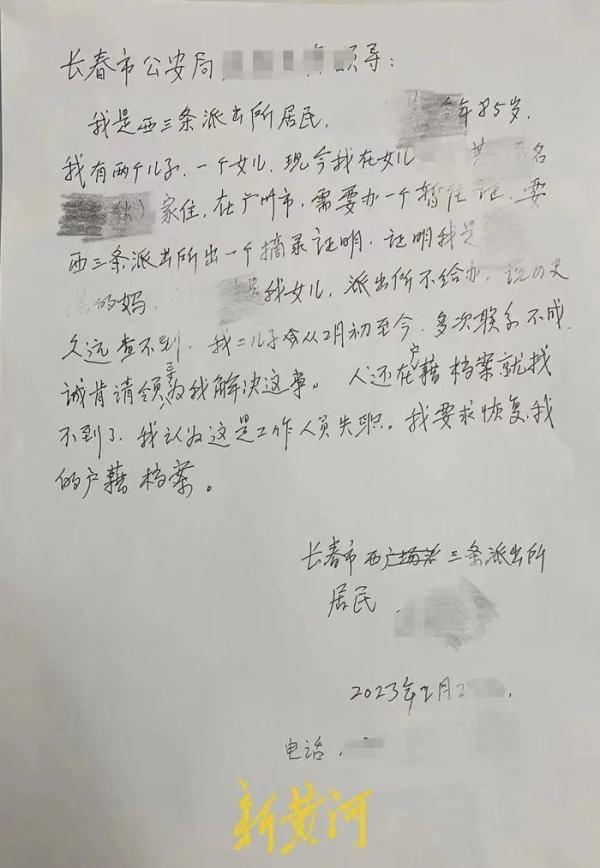 长春市公安局 领导：
我是西三条派出所居民， 今年85岁，
我有两个儿子，一个女儿，现今我在女儿 名
家住，在广州市，需要办一个暂住证，要
西三条派出所出一个摘录证明，证明我是
的妈 是我女儿，派出所不给办，说历史
久远查不到，我二儿子从2月初至今，多次联系不成，
诚肯请领导为我解决这事。人还在户藉档案就找
不到了，我认为这是工作人员失职。我要求恢复我
的户藉档案。
长春市西 三条派出所
居民
2023年2月2
电话，
新黄河